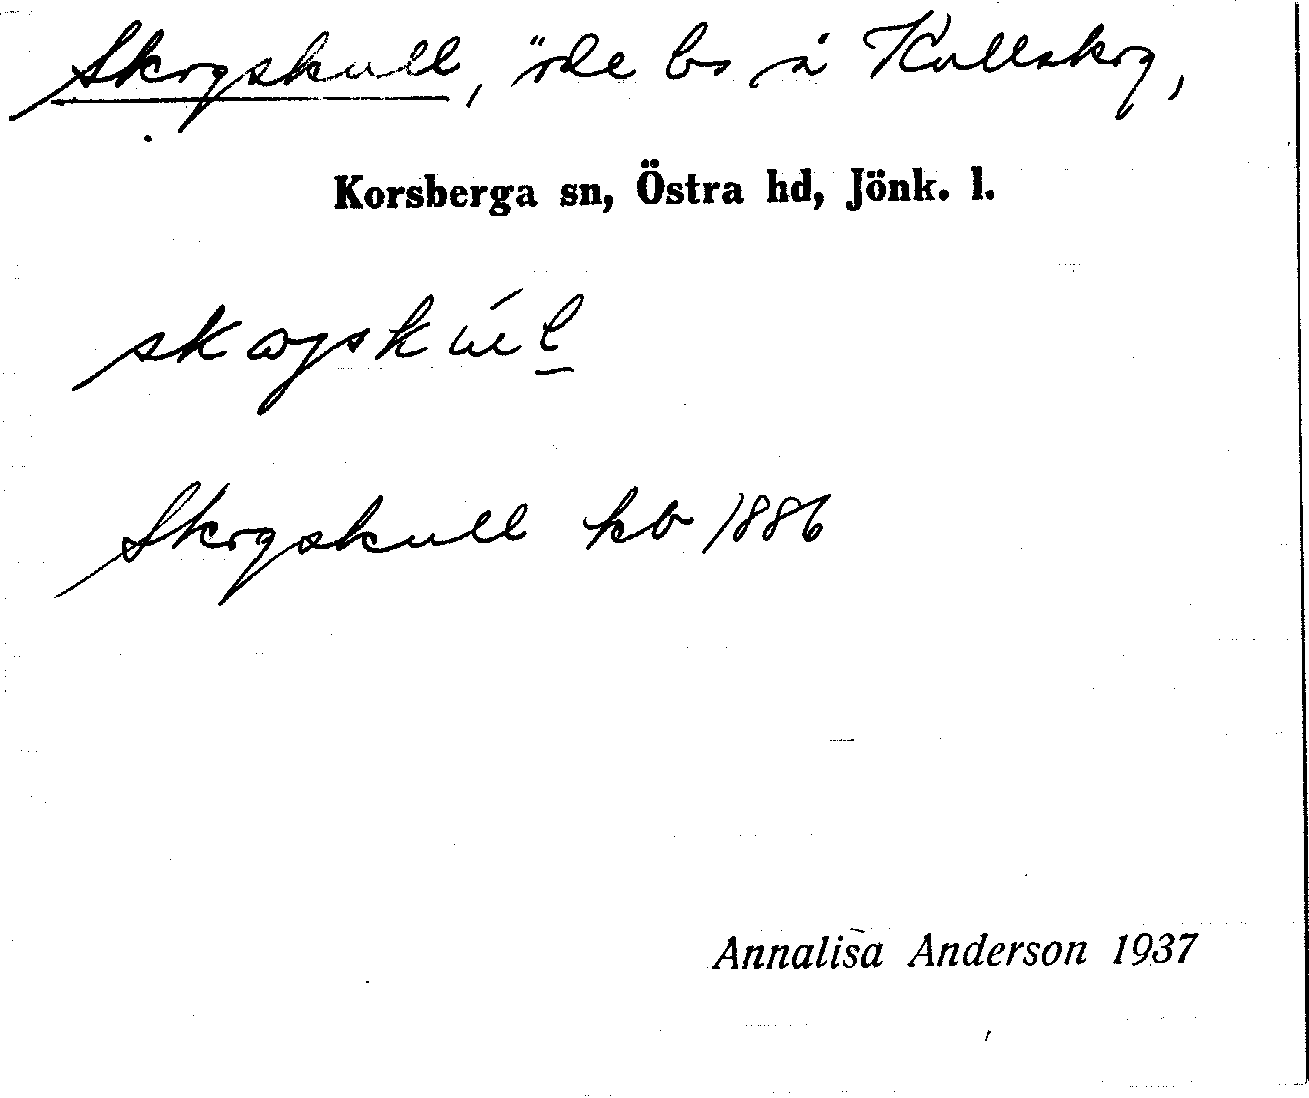 Skogskull, öde bs å Kullskog,
Korsberga sn, Östra hd, Jönk. l.
Skogskull kb 1886
Annalisa Anderson 1937